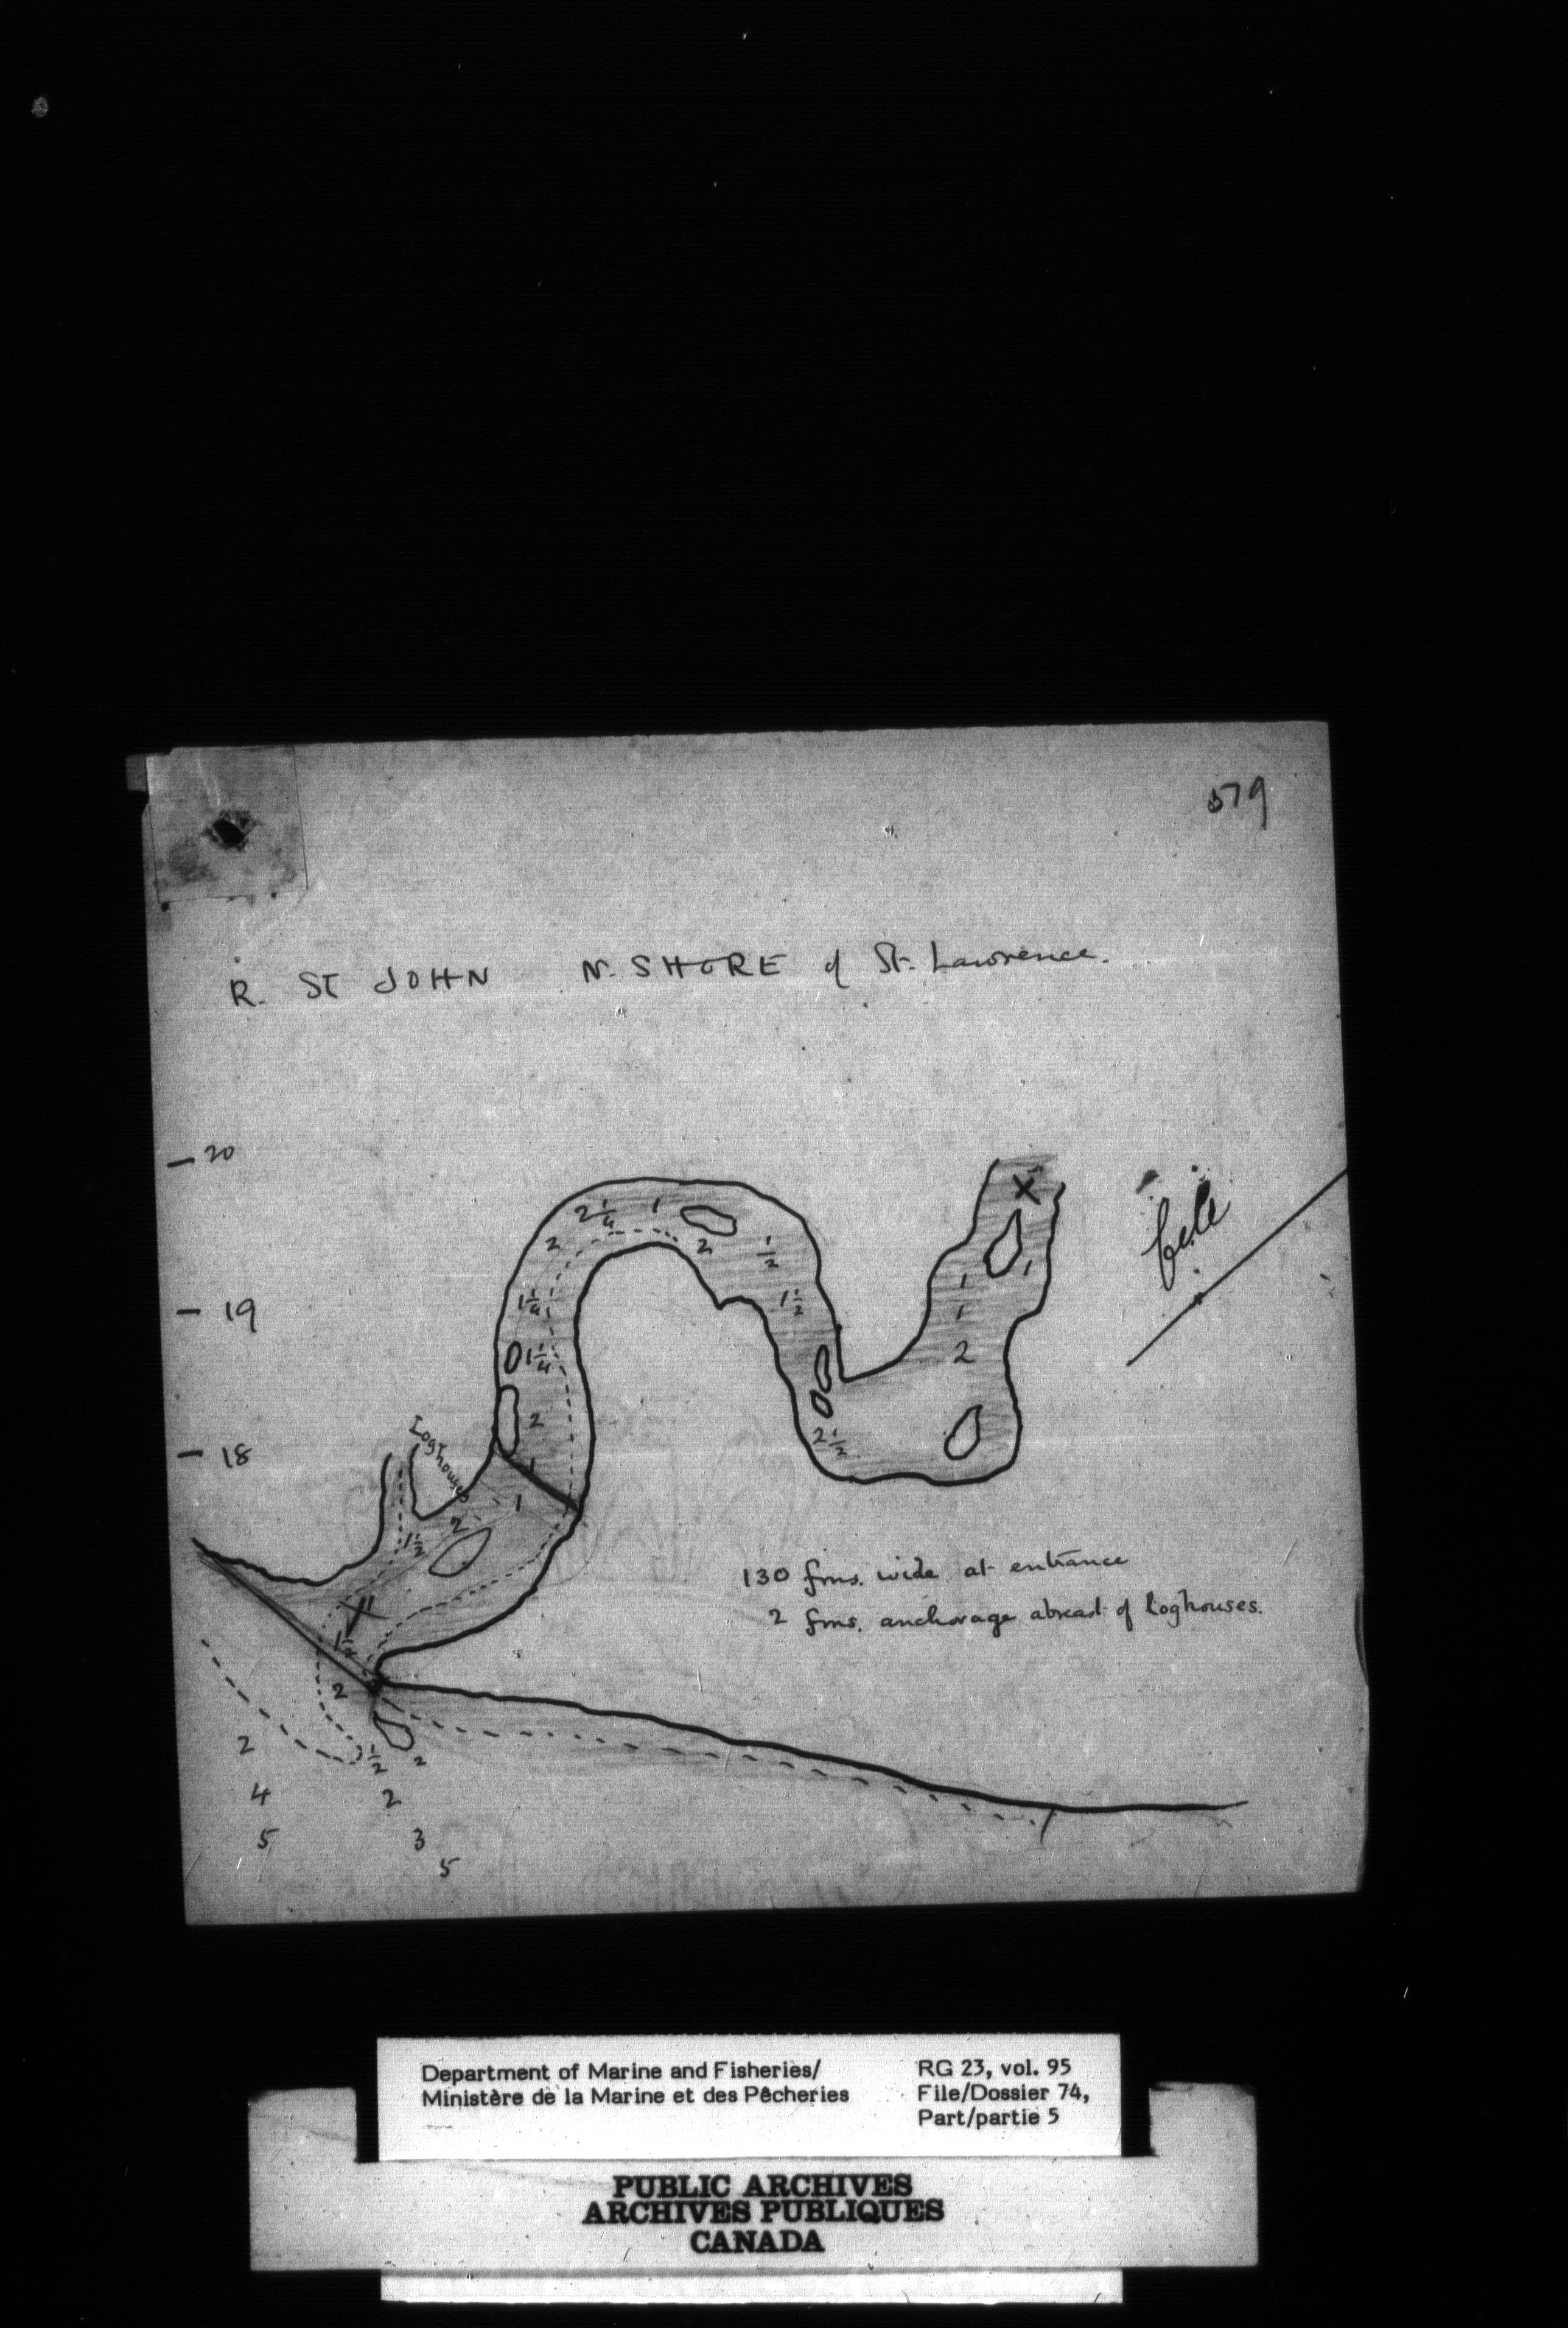 579
R. ST JOHN N. SHORE of St. Lawrence.
20
2 1/4 1
2 2 1/2
file
1 1
19 1 1/4 1 1/2 1
1 1/4 2
2
18 Loghouses 2 1/2
1
1
2
1 1/2
130 fms. wide at entrance
2 fms. anchorage abreast of loghouses.
1 1/2
2
2 1/2 2
4 2
5 3
5
Department of Marine and Fisheries/
Ministère de la Marine et des Pêcheries
RG 23, vol. 95
File/Dossier 74,
Part/partie 5
PUBLIC ARCHIVES
ARCHIVES PUBLIQUES
CANADA